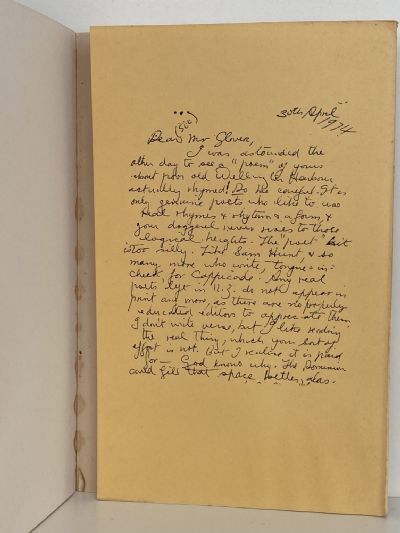 30th April
1974
Dear Mr Glover,
I was astounded the
other day to see a "poem" of yours
about poor old Wellington Harbour
actually rhymed! Do be careful. It is
only genuine poets who like to use
real rhymes & rhythm & form, &
your doggerel never rises to those
logical heights. The "poet" bit
is too silly. Like Sam Hunt, & so
many more who write, tongue-in-
cheek for Cappicade. Any real
poets left in N.Z. do not appear in
print any more, as there are no properly
educated editors to appreciate them.
I don't write verse, but I like reading
the real thing, which your sort of
effort is not. But I realise it is paid
for — God knows why. The Dominion
could fill that space better,